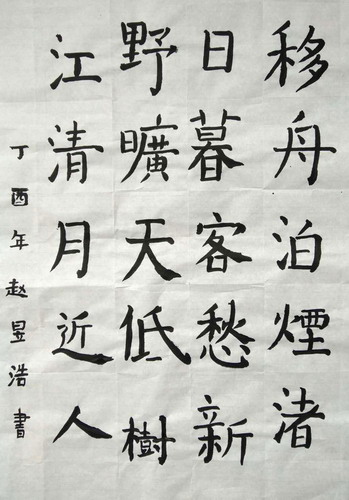 移舟泊煙渚
日暮客愁新
野曠天低樹
江清月近人
丁酉年赵昱浩書